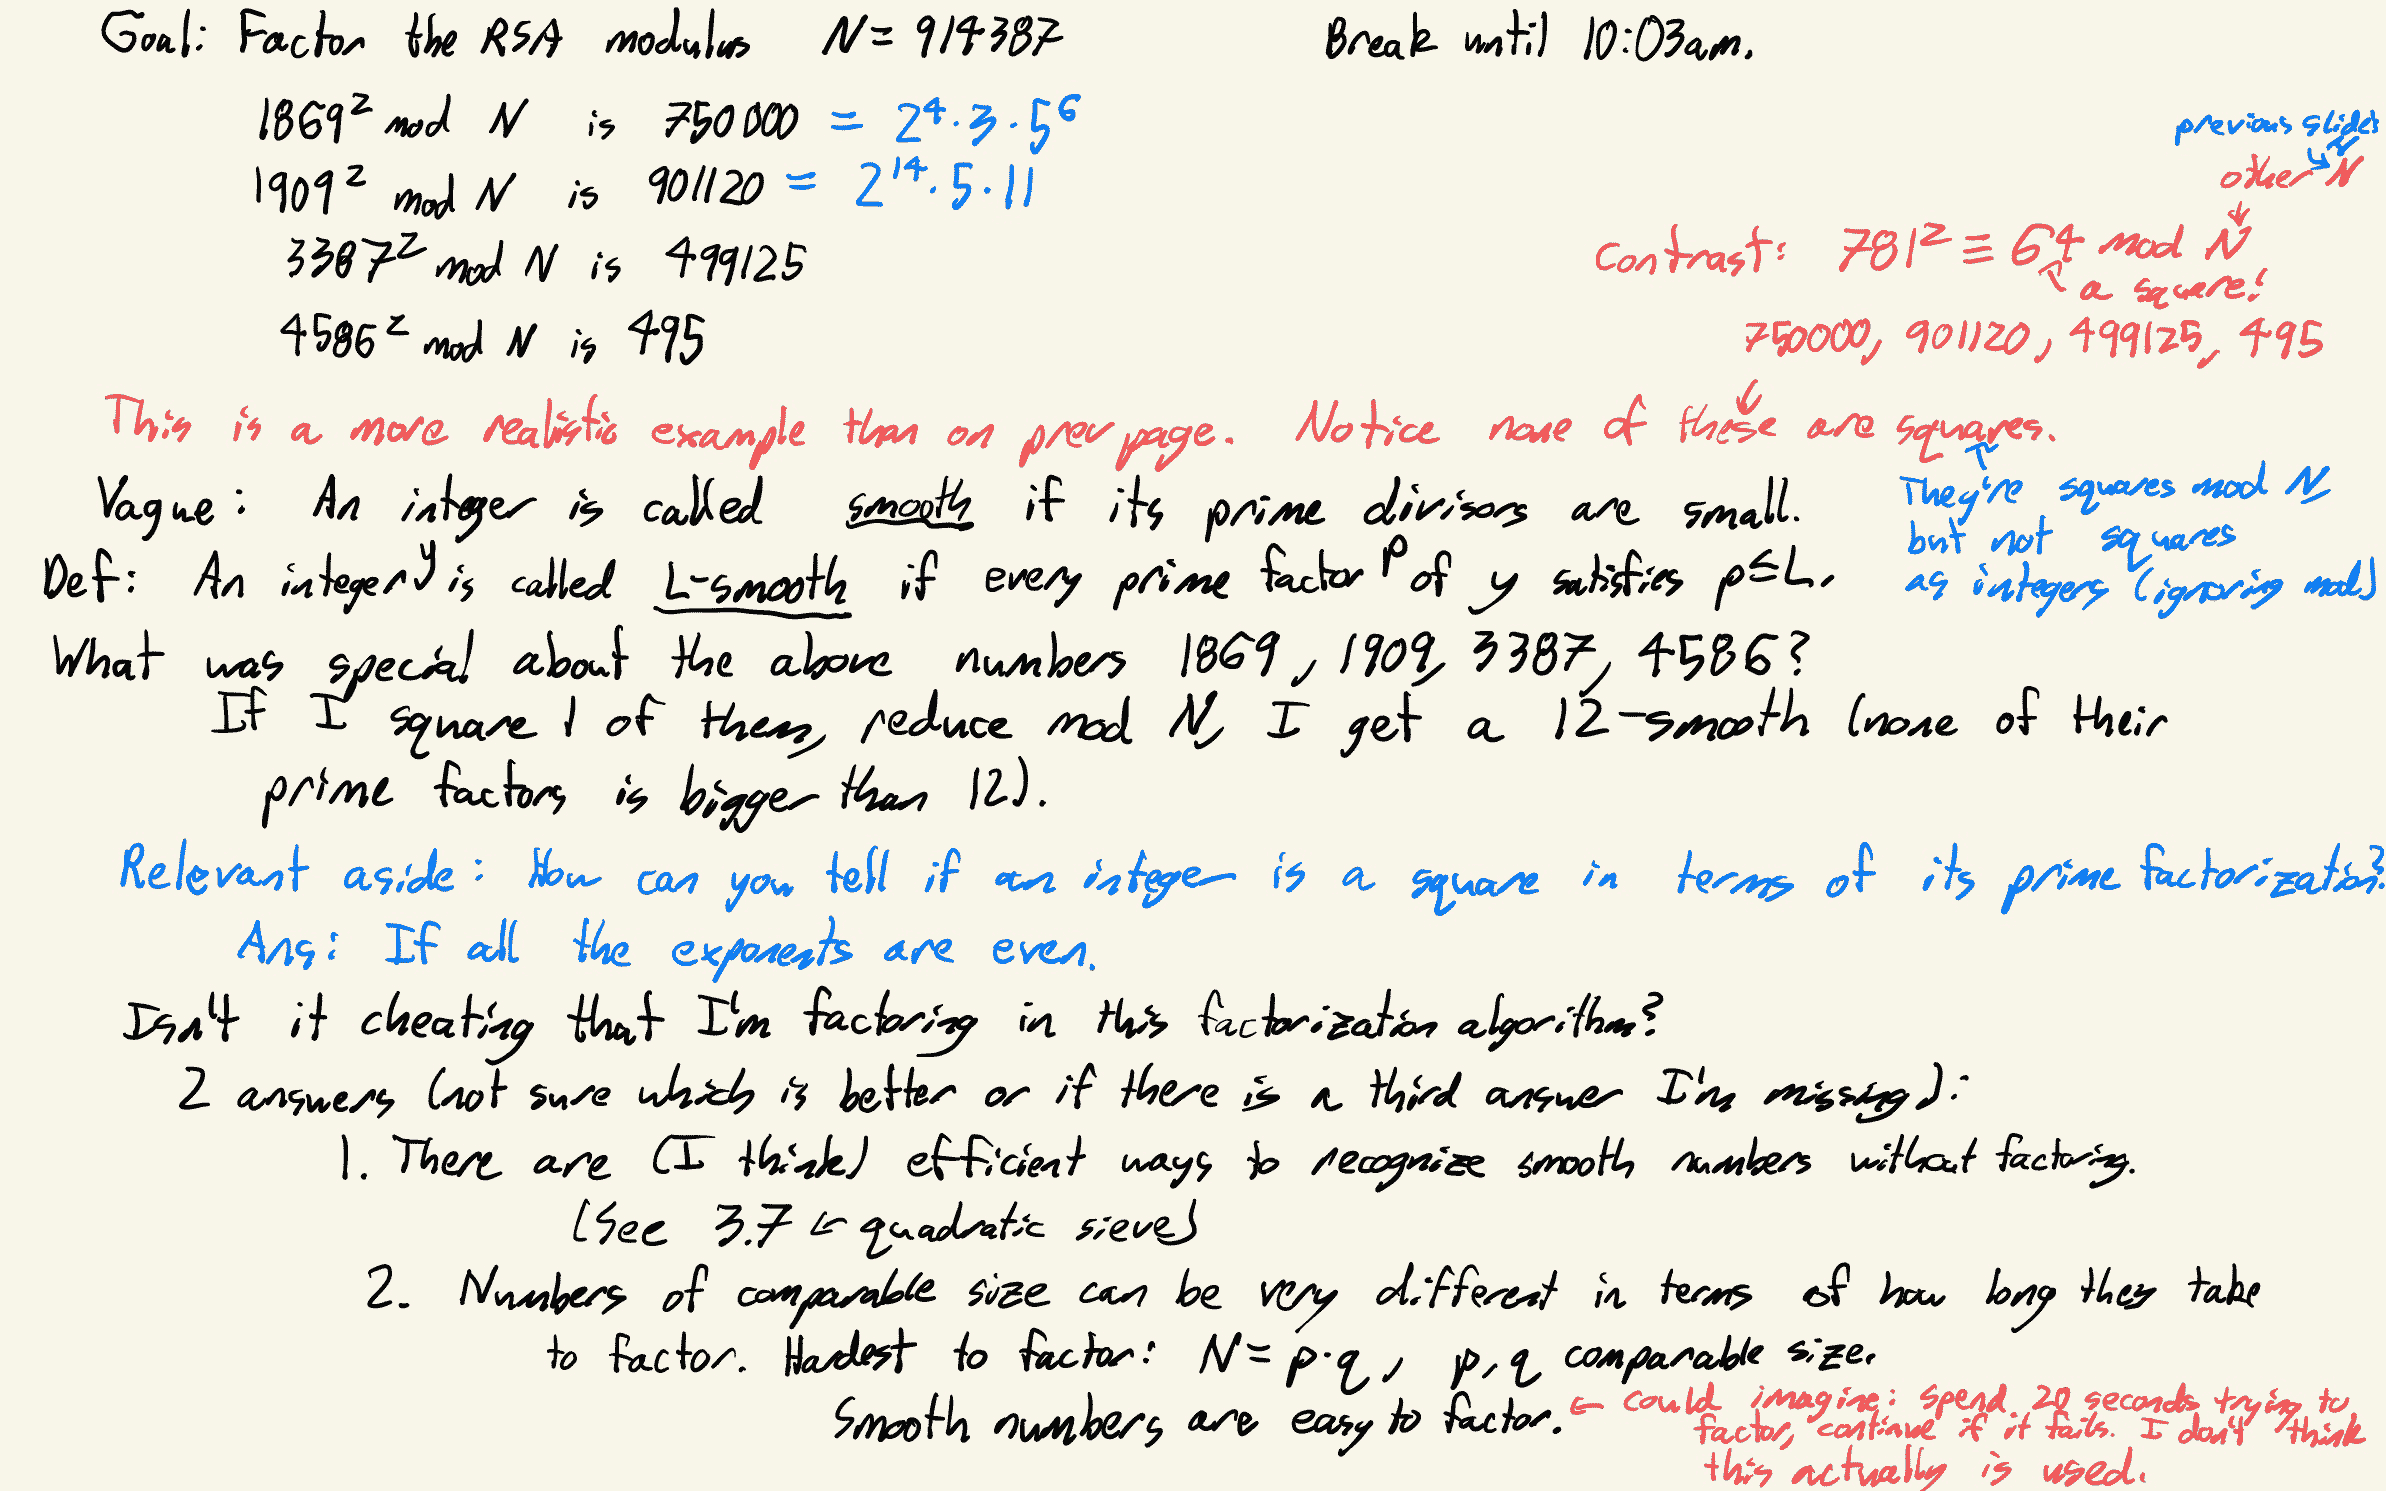 Goal: Factor the RSA modulus N = 914387
Break until 10:03am.
1869² mod N is 750000 = 2⁴·3·5⁶
1909² mod N is 901120 = 2¹⁴·5·11
3387² mod N is 499125
4586² mod N is 495
previous slide's N
other N
Contrast: 781² ≡ 6⁴ mod N
a square!
750000, 901120, 499125, 495
This is a more realistic example than on prev page. Notice none of these are squares.
They're squares mod N
but not squares
as integers (ignoring mod)
Vague: An integer is called smooth if its prime divisors are small.
Def: An integer y is called L-smooth if every prime factor p of y satisfies p≤L.
What was special about the above numbers 1869, 1909, 3387, 4586?
If I square 1 of them, reduce mod N, I get a 12-smooth (none of their
prime factors is bigger than 12).
Relevant aside: How can you tell if an integer is a square in terms of its prime factorization?
Ans: If all the exponents are even.
Isn't it cheating that I'm factoring in this factorization algorithm?
2 answers (not sure which is better or if there is a third answer I'm missing):
1. There are (I think) efficient ways to recognize smooth numbers without factoring.
(See 3.7 ← quadratic sieve)
2. Numbers of comparable size can be very different in terms of how long they take
to factor. Hardest to factor: N = p·q, p,q comparable size.
Smooth numbers are easy to factor. ← could imagine: spend 20 seconds trying to
factor, continue if it fails. I don't think
this actually is used.